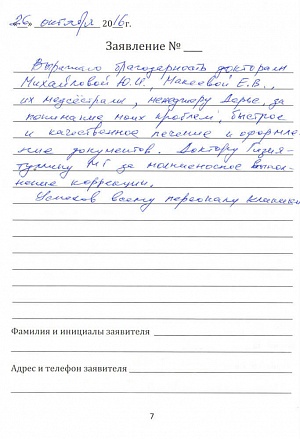 «26» октября 2016 г.
Заявление № ___
Выражаю благодарность докторам
Михайловой Ю.И., Макеевой Е.В.,
их медсёстрам, менеджеру Дарье, за
понимание моих проблем, быстрое
и качественное лечение и оформле-
ние документов. Доктору Гизят-
туллину М Г за молниеносное выпол-
нение коррекции.
Успехов всему персоналу клиники
Фамилия и инициалы заявителя
Адрес и телефон заявителя
7